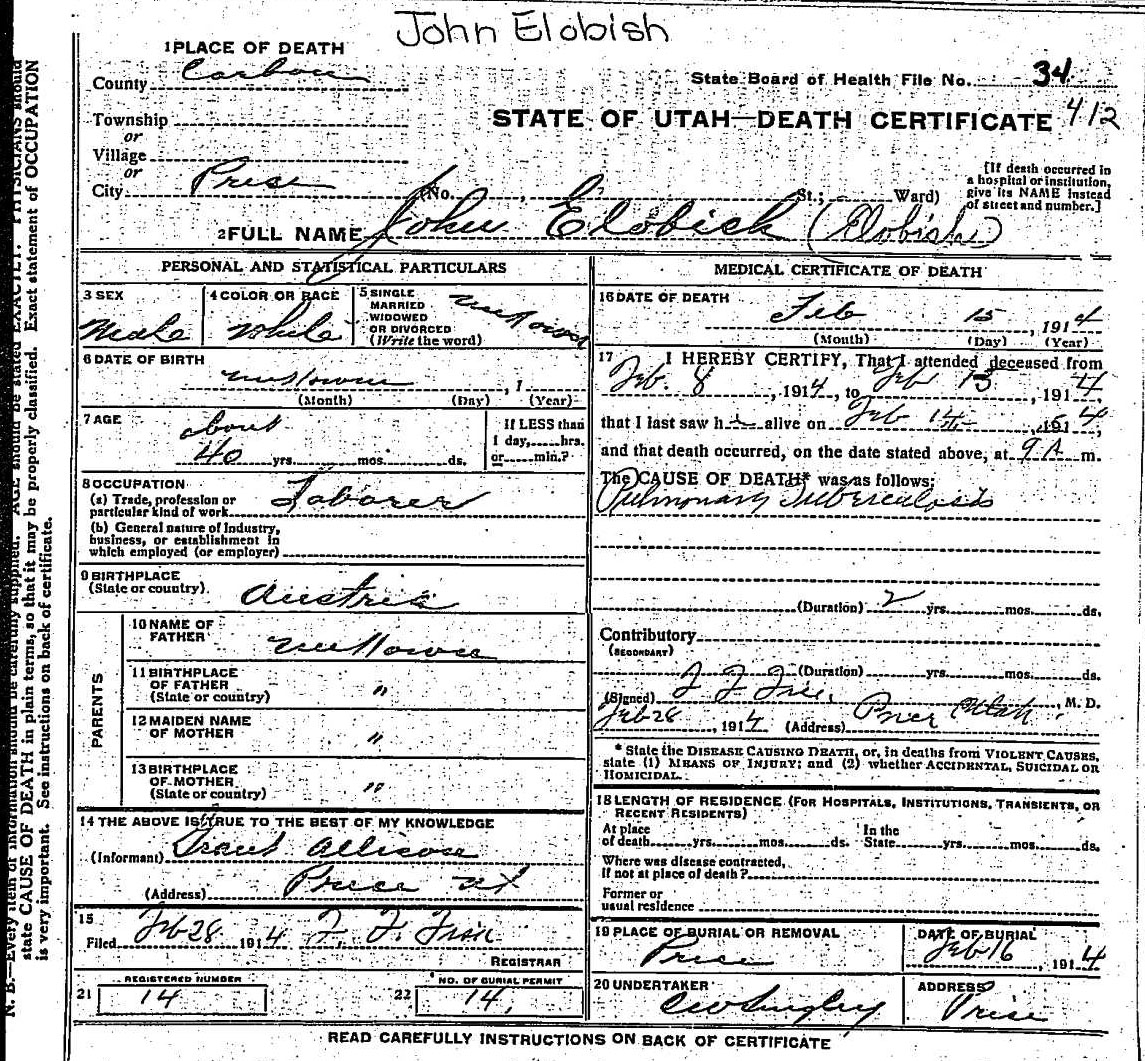 John Elobish
1 PLACE OF DEATH
County Carbon
State Board of Health File No. 34
Township
or
STATE OF UTAH—DEATH CERTIFICATE 412
Village
or
City Price (No. , St.; Ward)
[If death occurred in
a hospital or institution,
give its NAME instead
of street and number.]
2 FULL NAME John Elobich (Elobish)
PERSONAL AND STATISTICAL PARTICULARS
3 SEX
Male
4 COLOR OR RACE
White
5 SINGLE
MARRIED
WIDOWED
OR DIVORCED
(Write the word)
unknown
6 DATE OF BIRTH
unknown , 1
(Month) (Day) (Year)
7 AGE
about
40 yrs. mos. ds.
If LESS than
1 day, hrs.
or min.?
8 OCCUPATION
(a) Trade, profession or
particular kind of work Laborer
(b) General nature of industry,
business, or establishment in
which employed (or employer)
9 BIRTHPLACE
(State or country) Austria
PARENTS
10 NAME OF
FATHER unknown
11 BIRTHPLACE
OF FATHER
(State or country) "
12 MAIDEN NAME
OF MOTHER "
13 BIRTHPLACE
OF MOTHER
(State or country) "
14 THE ABOVE IS TRUE TO THE BEST OF MY KNOWLEDGE
(Informant)
(Address) Price Ut
15
Filed Feb 28 1914 F. F. Fisk
REGISTRAR
REGISTERED NUMBER
21 14
NO. OF BURIAL PERMIT
22 14
MEDICAL CERTIFICATE OF DEATH
16 DATE OF DEATH
Feb 15, 1914
(Month) (Day) (Year)
17 I HEREBY CERTIFY, That I attended deceased from
Feb. 8, 1914, to Feb 13, 1914
that I last saw h alive on Feb 14, 1914,
and that death occurred, on the date stated above, at 9 A m.
The CAUSE OF DEATH* was as follows:
Pulmonary Tuberculosis
(Duration) 2 yrs. mos. ds.
Contributory
(SECONDARY)
(Duration) yrs. mos. ds.
(Signed) F. F. Fisk, M. D.
Feb 28, 1914 (Address) Price Utah
* State the DISEASE CAUSING DEATH, or, in deaths from VIOLENT CAUSES,
state (1) MEANS OF INJURY; and (2) whether ACCIDENTAL, SUICIDAL OR
HOMICIDAL.
18 LENGTH OF RESIDENCE (FOR HOSPITALS, INSTITUTIONS, TRANSIENTS, OR
RECENT RESIDENTS)
At place
of death yrs. mos. ds.
In the
State yrs. mos. ds.
Where was disease contracted,
if not at place of death?
Former or
usual residence
19 PLACE OF BURIAL OR REMOVAL
Price
DATE OF BURIAL
Feb 16, 1914
20 UNDERTAKER
ADDRESS
Price
READ CAREFULLY INSTRUCTIONS ON BACK OF CERTIFICATE
N. B.—Every item of information should be carefully supplied. AGE should be stated EXACTLY. PHYSICIANS should
state CAUSE OF DEATH in plain terms, so that it may be properly classified. Exact statement of OCCUPATION
is very important. See instructions on back of certificate.